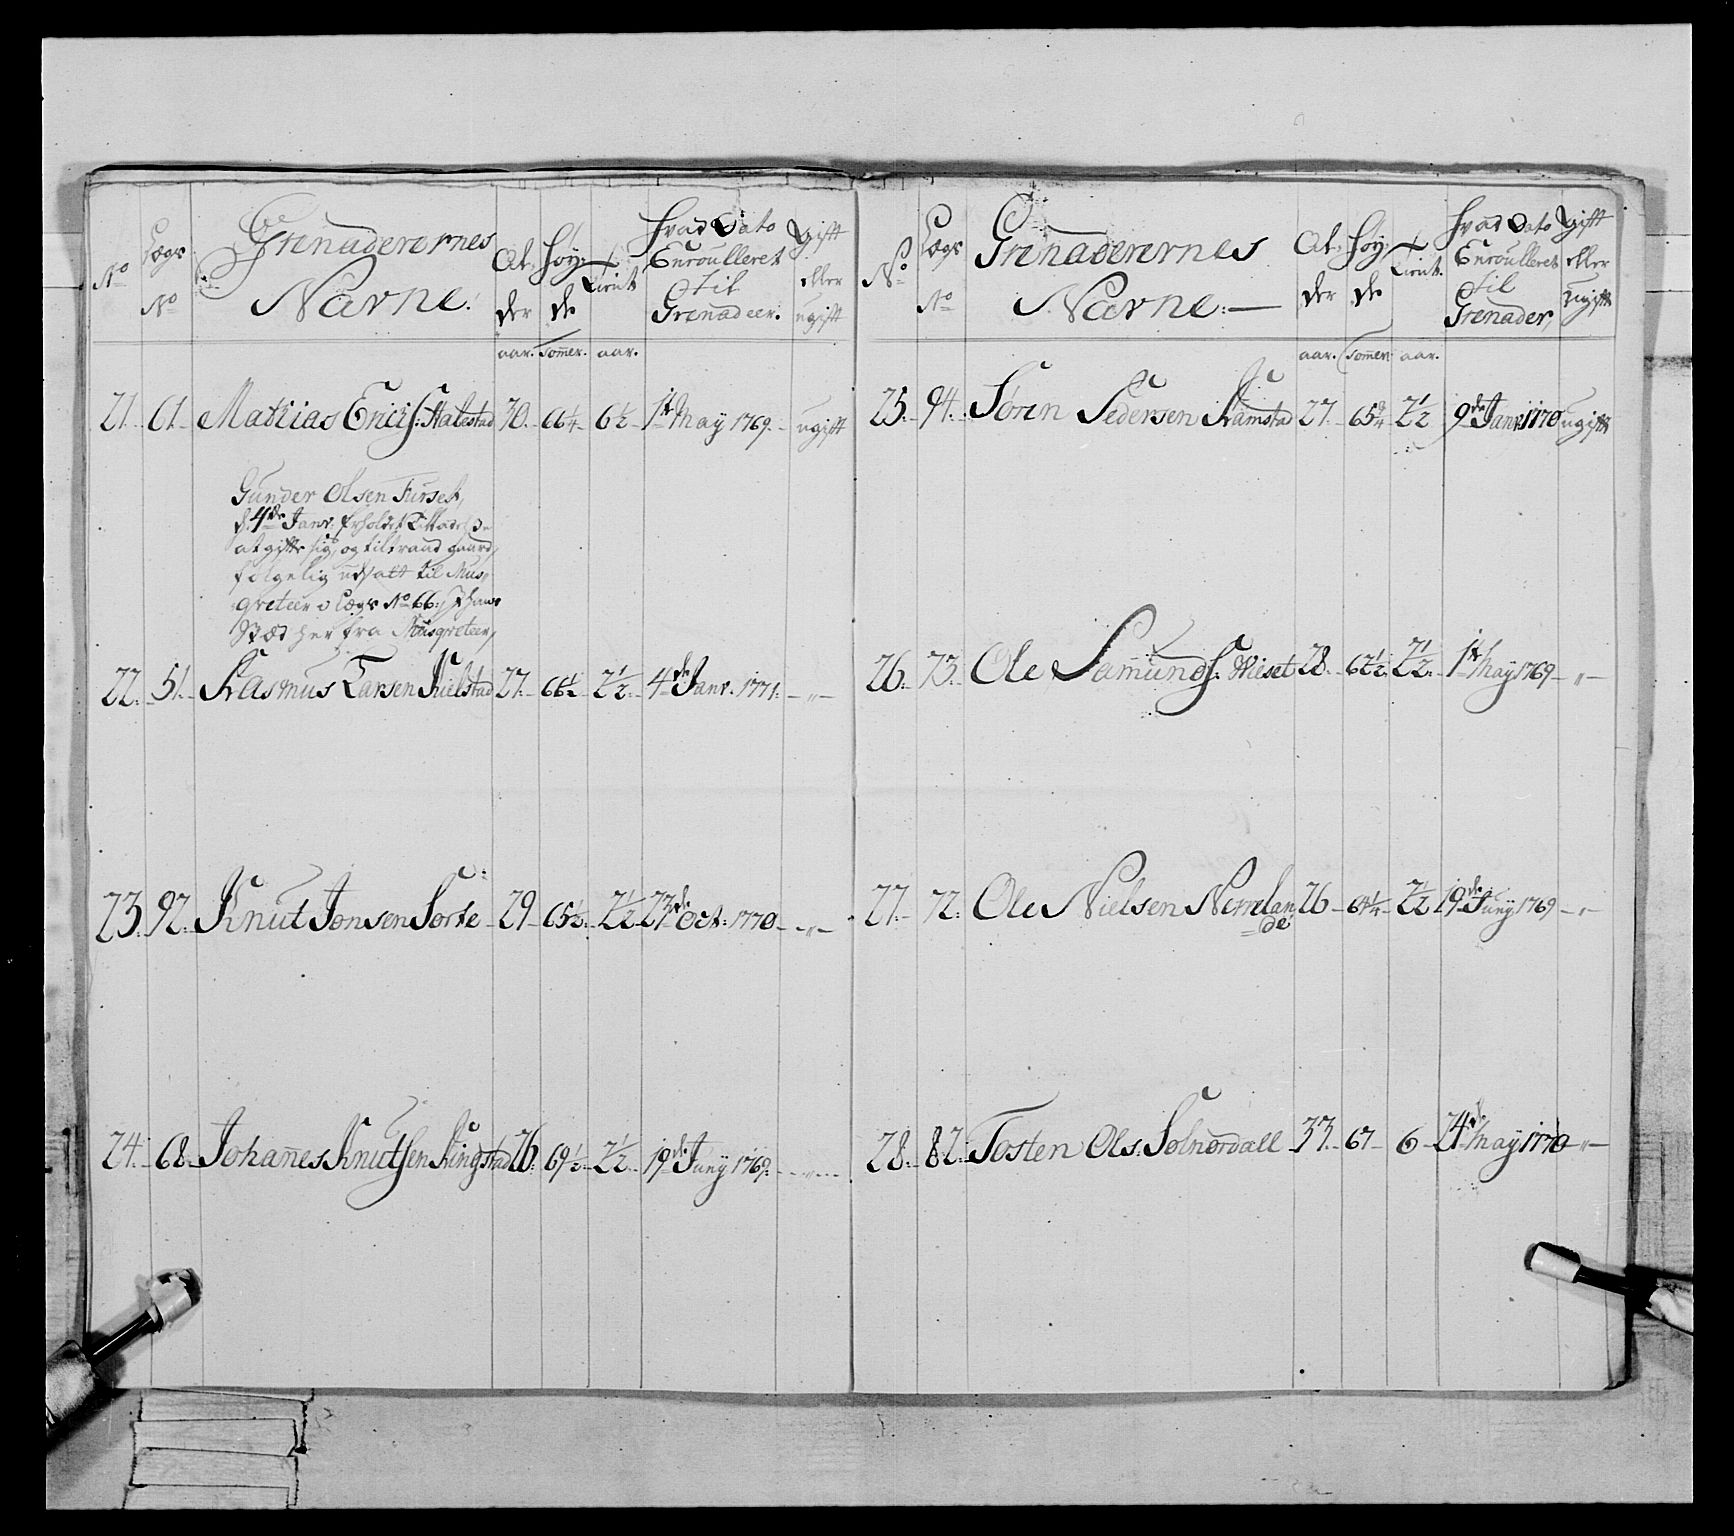 No
Lægs No
Grenaderernes Navne:
Al- der
Høy- de
Tient
Hvad Dato Enroulleret til Grenadeer.
Gift eller ugift
aar. tommer. aar.
21. 61. Mathias Erichs: Halestad 30. 66¼ 6½ 1te May 1769. ugift
Gunder Olsen Furset,
d. 4de Janr: erholdet Tilladelse
at gifte sig, og tiltraad gaard,
følgelig udsatt til Mus-
qveteer i Lægs No 66,
Sted her fra Musqveteer,
22. 51. Rasmus Larsen Kielstad 27. 66½ 2½ 4de Janr. 1771. — " —
23. 92. Knut Jonsen Sorte 29 65½ 2½ 27de Oct: 1770 — " —
24. 68. Johanes Knutsen Ringstad 26. 69½ 2½ 19de Juny 1769. — " —
No
Lægs No
Grenaderernes Navne:
Al- der
Høy- de
Tient
Hvad Dato Enroulleret til Grenader,
gift eller ugift
aar. tommer aar.
25. 94. Sören Pedersen Ramstad 27. 65¾ 2½ 9de Janr: 1770 ugift
26. 73. Ole Samunds: Wiset 28. 67½ 2½ 1te May 1769 — " —
27. 72. Ole Nielsen Nerrelan
de
26 64¼ 2½ 19de Juny 1769 — " —
28. 82. Tosten Ols: Solnordall 33. 67 6 24de May 1770 — " —